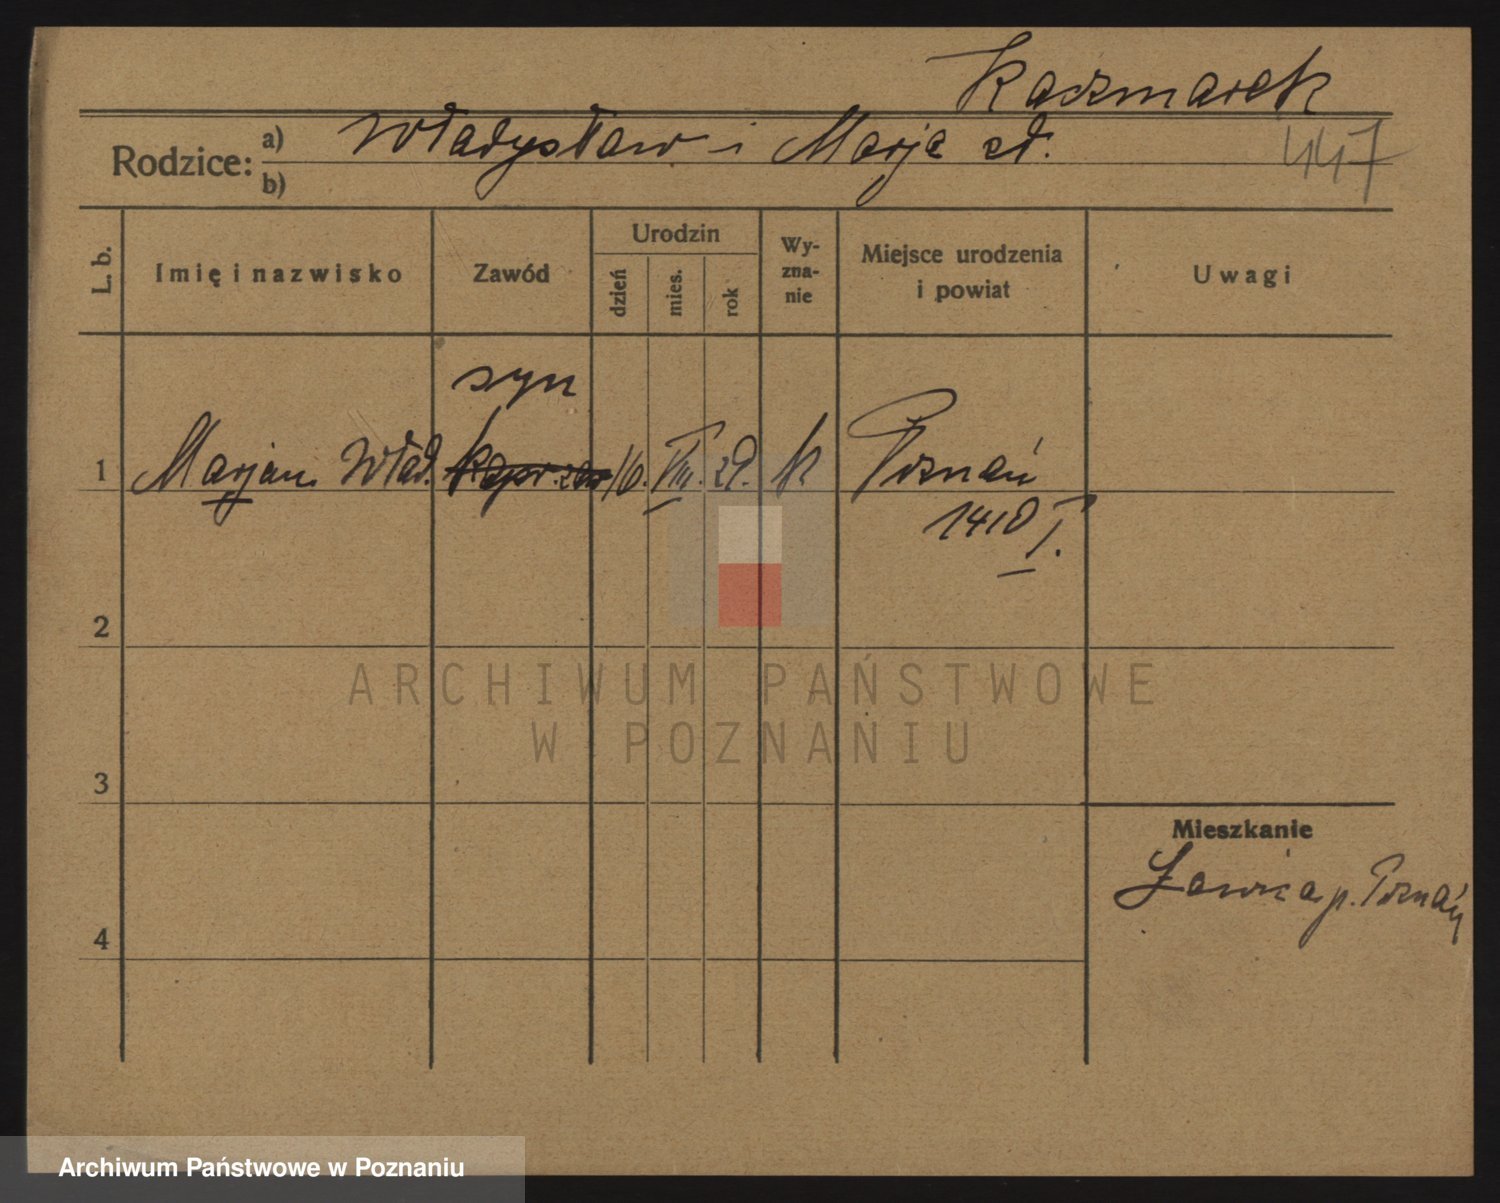 Kaczmarek
Rodzice: a) Władysław i Marja
b)
447
L. b.
Imię i nazwisko
Zawód
Urodzin
dzień
mies.
rok
Wy-
zna-
nie
Miejsce urodzenia
i powiat
Uwagi
syn
1 Marjan Wład. 16. VIII. 29. k Poznań
1410 I.
2
3
4
Mieszkanie
Ławica p. Poznań
ARCHIWUM PAŃSTWOWE
W POZNANIU
Archiwum Państwowe w Poznaniu